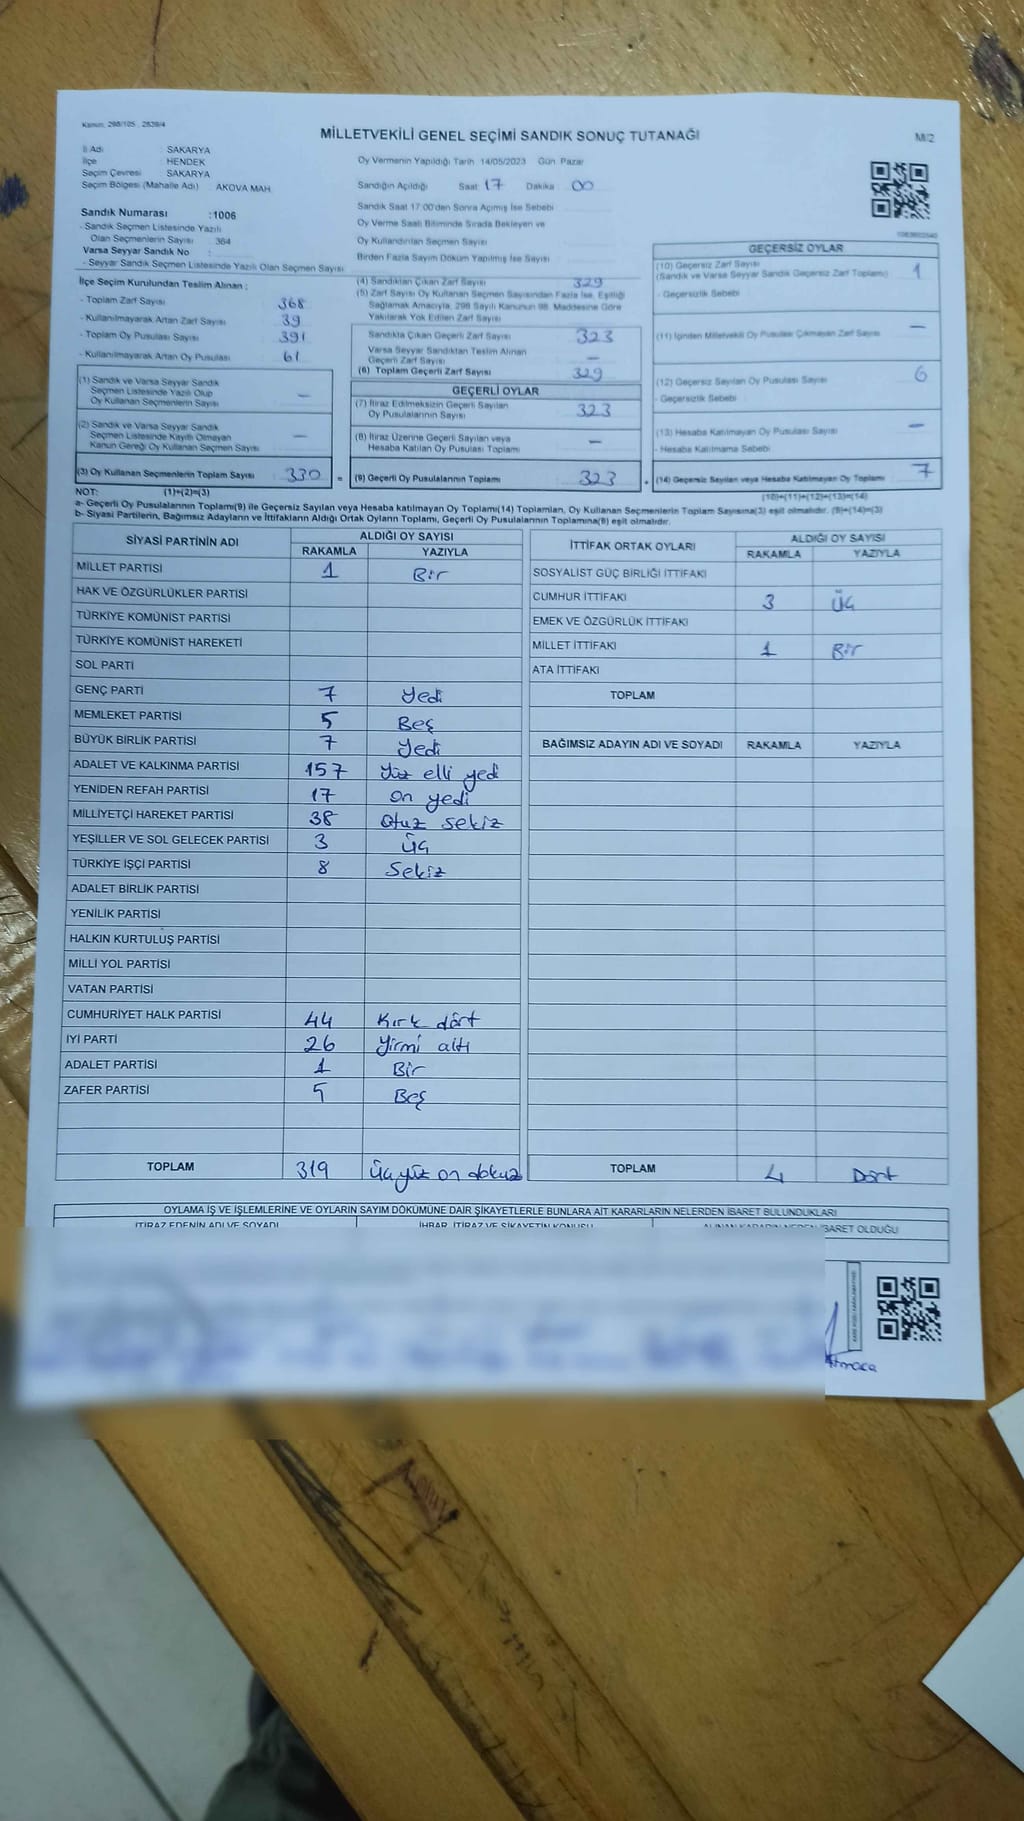 Kanun, 298/105 , 2839/4
MİLLETVEKİLİ GENEL SEÇİMİ SANDIK SONUÇ TUTANAĞI
M/2
İl Adı : SAKARYA
İlçe : HENDEK
Seçim Çevresi : SAKARYA
Seçim Bölgesi (Mahalle Adı) : AKOVA MAH.
Oy Vermenin Yapıldığı Tarih 14/05/2023 Gün Pazar
Sandığın Açıldığı Saat 17 Dakika 00
Sandık Saat 17:00'den Sonra Açımış İse Sebebi
Oy Verme Saati Bitiminde Sırada Bekleyen ve
Oy Kullandırılan Seçmen Sayısı
Birden Fazla Sayım Döküm Yapılmış İse Sayısı
Sandık Numarası :1006
- Sandık Seçmen Listesinde Yazılı
Olan Seçmenlerin Sayısı : 364
Varsa Seyyar Sandık No :
- Seyyar Sandık Seçmen Listesinde Yazılı Olan Seçmen Sayısı
İlçe Seçim Kurulundan Teslim Alınan ;
- Toplam Zarf Sayısı : 368
- Kullanılmayarak Artan Zarf Sayısı : 39
- Toplam Oy Pusulası Sayısı : 391
- Kullanılmayarak Artan Oy Pusulası : 61
(1) Sandık ve Varsa Seyyar Sandık
Seçmen Listesinde Yazılı Olup
Oy Kullanan Seçmenlerin Sayısı —
(2) Sandık ve Varsa Seyyar Sandık
Seçmen Listesinde Kayıtlı Olmayan
Kanun Gereği Oy Kullanan Seçmen Sayısı —
(3) Oy Kullanan Seçmenlerin Toplam Sayısı 330 =
(4) Sandıktan Çıkan Zarf Sayısı 329
(5) Zarf Sayısı Oy Kullanan Seçmen Sayısından Fazla İse, Eşitliği
Sağlamak Amacıyla, 298 Sayılı Kanunun 98. Maddesine Göre
Yakılarak Yok Edilen Zarf Sayısı
Sandıkta Çıkan Geçerli Zarf Sayısı 323
Varsa Seyyar Sandıktan Teslim Alınan
Geçerli Zarf Sayısı —
(6) Toplam Geçerli Zarf Sayısı 329
GEÇERLİ OYLAR
(7) İtiraz Edilmeksizin Geçerli Sayılan
Oy Pusulalarının Sayısı 323
(8) İtiraz Üzerine Geçerli Sayılan veya
Hesaba Katılan Oy Pusulası Toplamı —
(9) Geçerli Oy Pusulalarının Toplamı 323 +
GEÇERSİZ OYLAR
(10) Geçersiz Zarf Sayısı 1
(Sandık ve Varsa Seyyar Sandık Geçersiz Zarf Toplamı)
- Geçersizlik Sebebi
(11) İçinden Milletvekili Oy Pusulası Çıkmayan Zarf Sayısı —
(12) Geçersiz Sayılan Oy Pusulası Sayısı 6
- Geçersizlik Sebebi
(13) Hesaba Katılmayan Oy Pusulası Sayısı —
- Hesaba Katılmama Sebebi
(14) Geçersiz Sayılan veya Hesaba Katılmayan Oy Toplamı 7
(10)+(11)+(12)+(13)=(14)
NOT: (1)+(2)=(3)
a- Geçerli Oy Pusulalarının Toplamı(9) ile Geçersiz Sayılan veya Hesaba katılmayan Oy Toplamı(14) Toplamları, Oy Kullanan Seçmenlerin Toplam Sayısına(3) eşit olmalıdır. (9)+(14)=(3)
b- Siyasi Partilerin, Bağımsız Adayların ve İttifakların Aldığı Ortak Oyların Toplamı, Geçerli Oy Pusulalarının Toplamına(9) eşit olmalıdır.
SİYASİ PARTİNİN ADI ALDIĞI OY SAYISI
RAKAMLA YAZIYLA
MİLLET PARTİSİ 1 Bir
HAK VE ÖZGÜRLÜKLER PARTİSİ
TÜRKİYE KOMÜNİST PARTİSİ
TÜRKİYE KOMÜNİST HAREKETİ
SOL PARTİ
GENÇ PARTİ 7 Yedi
MEMLEKET PARTİSİ 5 Beş
BÜYÜK BİRLİK PARTİSİ 7 Yedi
ADALET VE KALKINMA PARTİSİ 157 Yüz elli yedi
YENİDEN REFAH PARTİSİ 17 On yedi
MİLLİYETÇİ HAREKET PARTİSİ 38 Otuz sekiz
YEŞİLLER VE SOL GELECEK PARTİSİ 3 Üç
TÜRKİYE İŞÇİ PARTİSİ 8 Sekiz
ADALET BİRLİK PARTİSİ
YENİLİK PARTİSİ
HALKIN KURTULUŞ PARTİSİ
MİLLİ YOL PARTİSİ
VATAN PARTİSİ
CUMHURİYET HALK PARTİSİ 44 Kırk dört
İYİ PARTİ 26 Yirmi altı
ADALET PARTİSİ 1 Bir
ZAFER PARTİSİ 5 Beş
TOPLAM 319 Üçyüz on dokuz
İTTİFAK ORTAK OYLARI ALDIĞI OY SAYISI
RAKAMLA YAZIYLA
SOSYALİST GÜÇ BİRLİĞİ İTTİFAKI
CUMHUR İTTİFAKI 3 Üç
EMEK VE ÖZGÜRLÜK İTTİFAKI
MİLLET İTTİFAKI 1 Bir
ATA İTTİFAKI
TOPLAM
BAĞIMSIZ ADAYIN ADI VE SOYADI RAKAMLA YAZIYLA
TOPLAM 4 Dört
OYLAMA İŞ VE İŞLEMLERİNE VE OYLARIN SAYIM DÖKÜMÜNE DAİR ŞİKAYETLERLE BUNLARA AİT KARARLARIN NELERDEN İBARET BULUNDUKLARI
İTİRAZ EDENİN ADI VE SOYADI İHBAR, İTİRAZ VE ŞİKAYETİN KONUSU ALINAN KARARIN NEDEN İBARET OLDUĞU